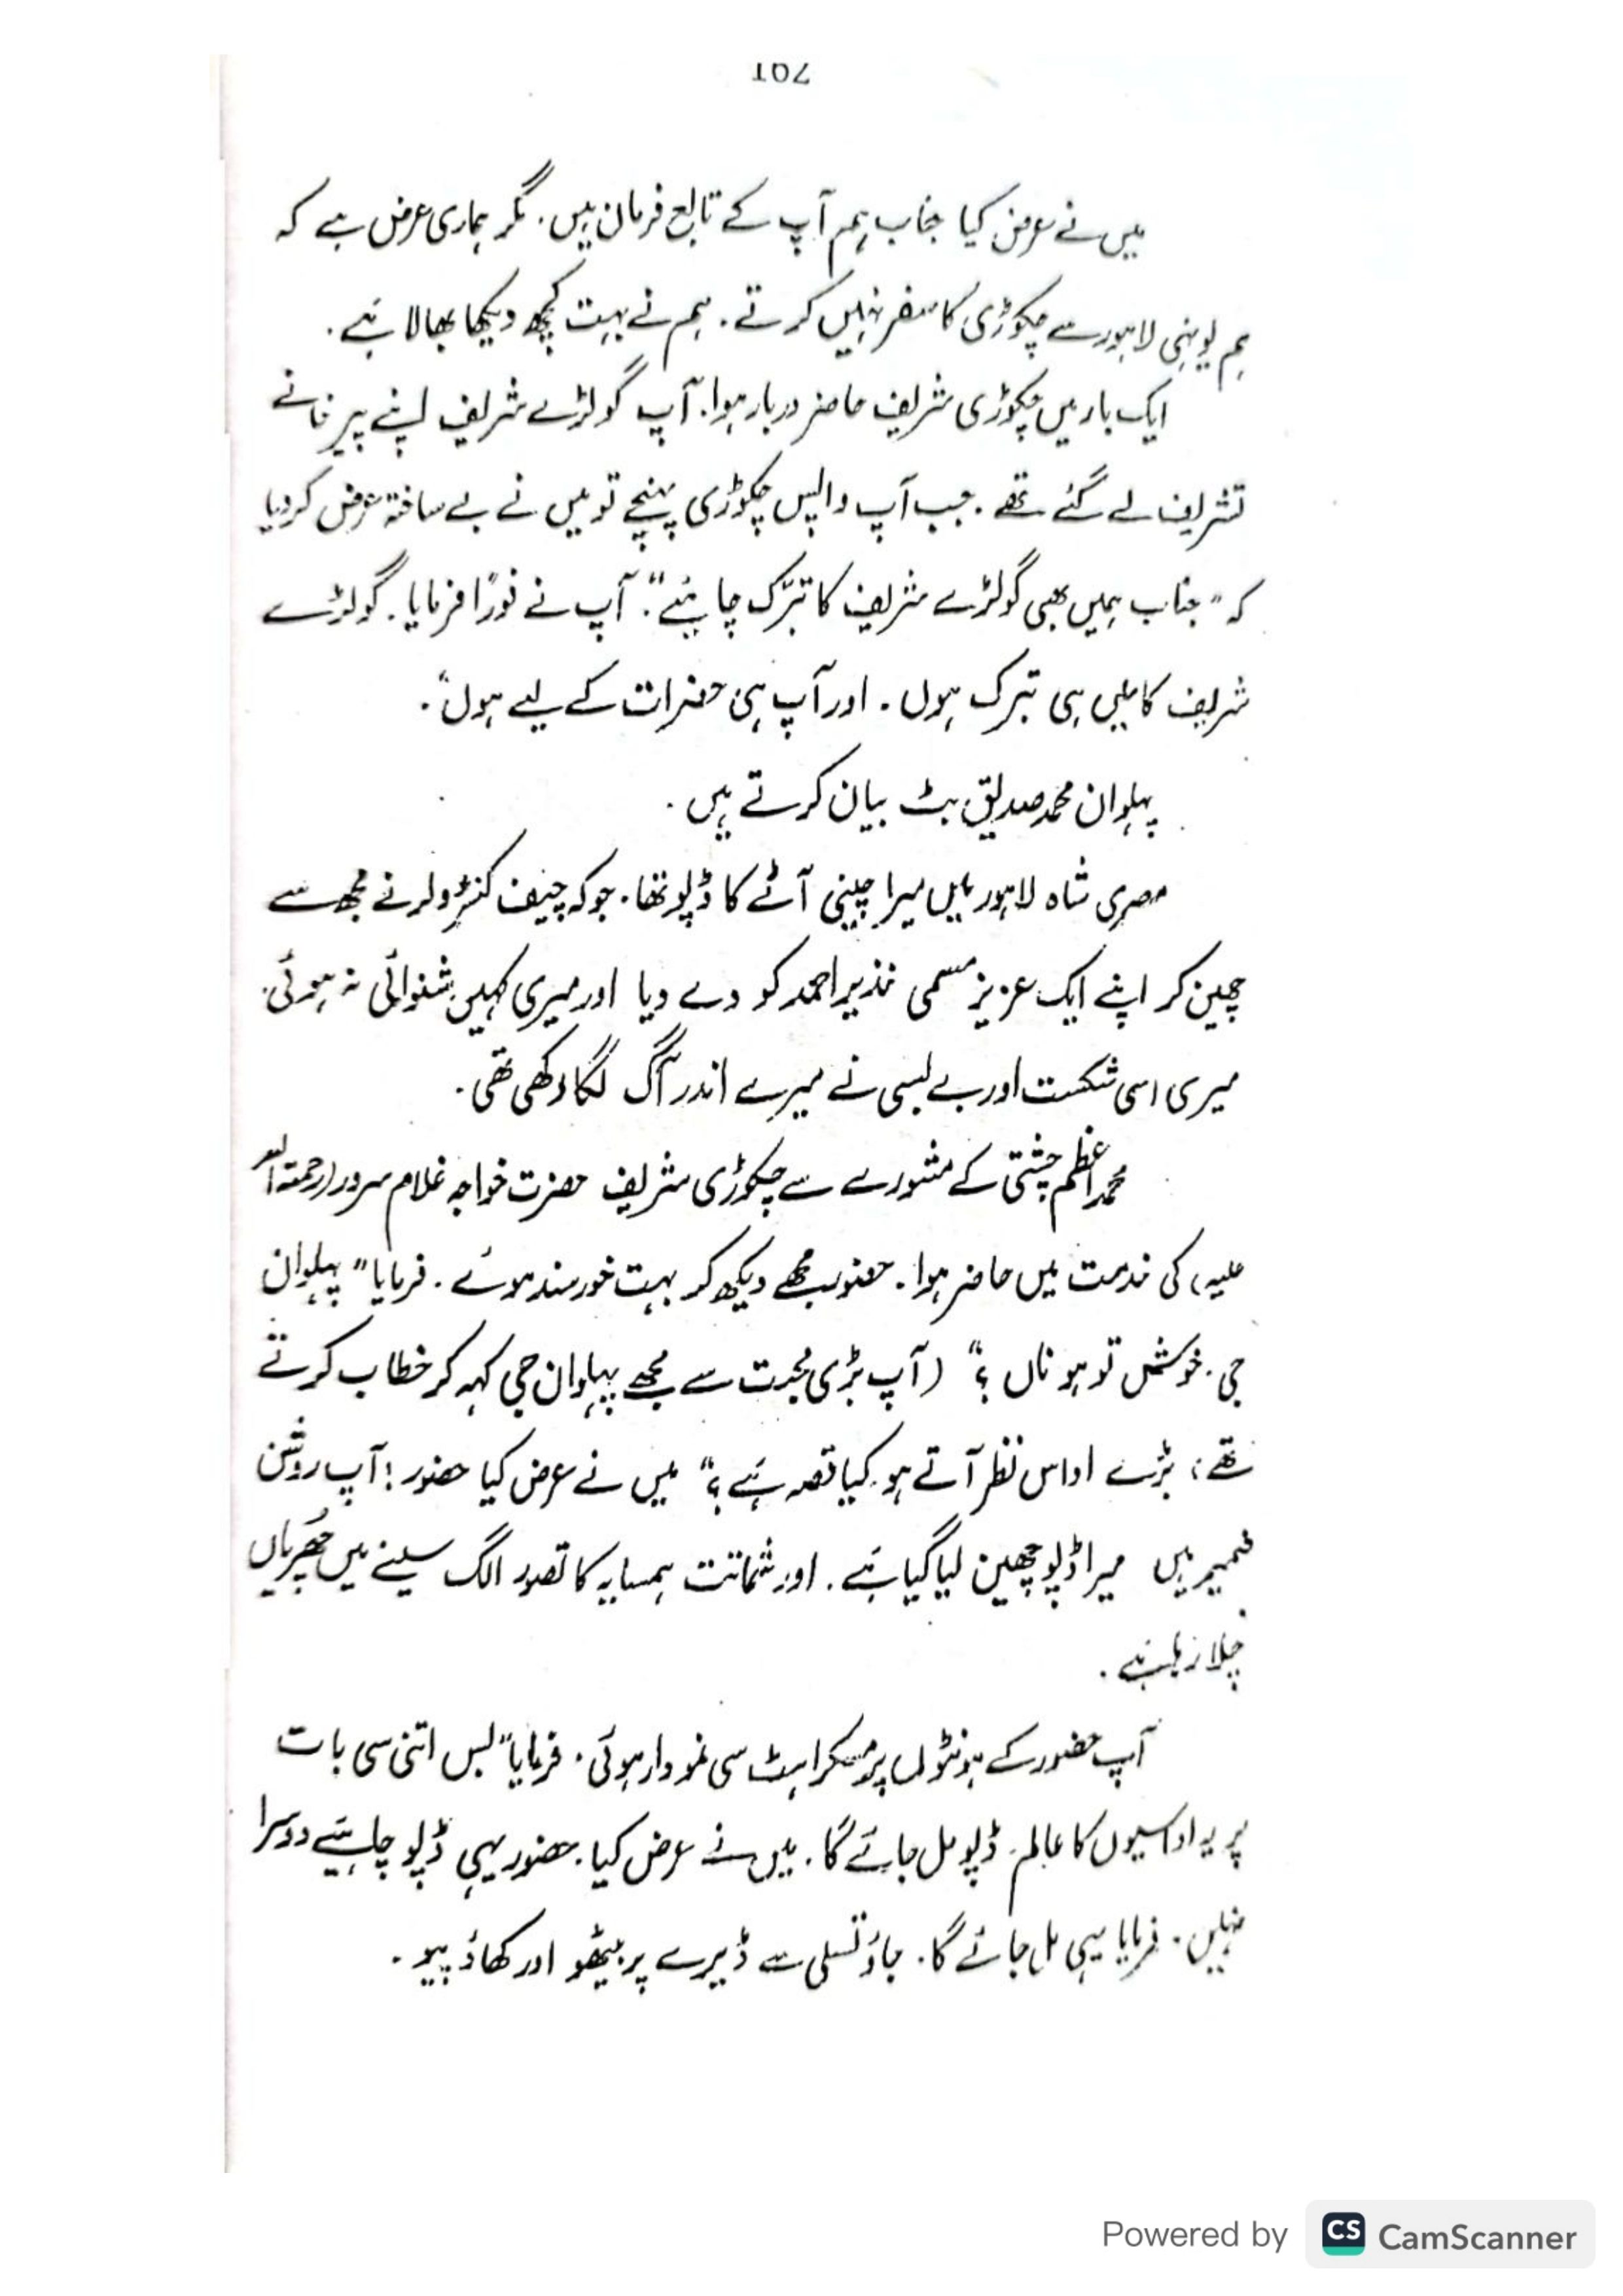 میں نے عرض کیا جناب ہم آپ کے تابع فرمان ہیں. مگر ہماری عرض ہے کہ
ہم یونہی لاہور سے چکوڑی کا سفر نہیں کرتے. ہم نے بہت کچھ دیکھا بھالا ہَے.
ایک بار میں چکوڑی شریف حاضر دربار ہوا. آپ گولڑے شریف اپنے پیر خانے
تشریف لے گئے تھے. جب آپ واپس چکوڑی پہنچے تو میں نے بے ساختہ عرض کر دیا
کہ "جناب ہمیں بھی گولڑے شریف کا تبرّک چاہیئے". آپ نے فورًا فرمایا. گولڑے
شریف کا میں ہی تبرک ہوں. اور آپ ہی حضرات کے لیے ہوں".
پہلوان محمد صدیق بٹ بیان کرتے ہیں.
مصری شاہ لاہور میں میرا چینی آٹے کا ڈپو تھا. جو کہ چیف کنڑولر نے مجھ سے
چھین کر اپنے ایک عزیز مسمی نذیر احمد کو دے دیا اور میری کہیں شنوائی نہ ہوئی.
میری اسی شکست اور بے بسی نے میرے اندر آگ لگا رکھی تھی.
محمد اعظم چشتی کے مشورے سے چکوڑی شریف حضرت خواجہ غلام سرور (رحمتہ اللہ
علیہ) کی خدمت میں حاضر ہوا. حضور مجھے دیکھ کر بہت خورسند ہوئے. فرمایا "پہلوان
جی. خوش تو ہو ناں؟" (آپ بڑی محبت سے مجھے پہلوان جی کہہ کر خطاب کرتے
تھے) بڑے اداس نظر آتے ہو. کیا قصہ ہَے؟" میں نے عرض کیا حضور! آپ روشن
ضمیر ہیں میرا ڈپو چھین لیا گیا ہَے. اور شماتت ہمسایہ کا تصور الگ سینے میں چھریاں
چلا رہا ہَے.
آپ حضور کے ہونٹوں پر مسکراہٹ سی نمودار ہوئی. فرمایا "بس اتنی سی بات
پر یہ اداسیوں کا عالم. ڈپو مل جائے گا. میں نے عرض کیا. حضور یہی ڈپو چاہیئے دوسرا
نہیں. فرمایا یہی مل جائے گا. جاؤ تسلی سے ڈیرے پر بیٹھو اور کھاؤ پیو.
Powered by CS CamScanner